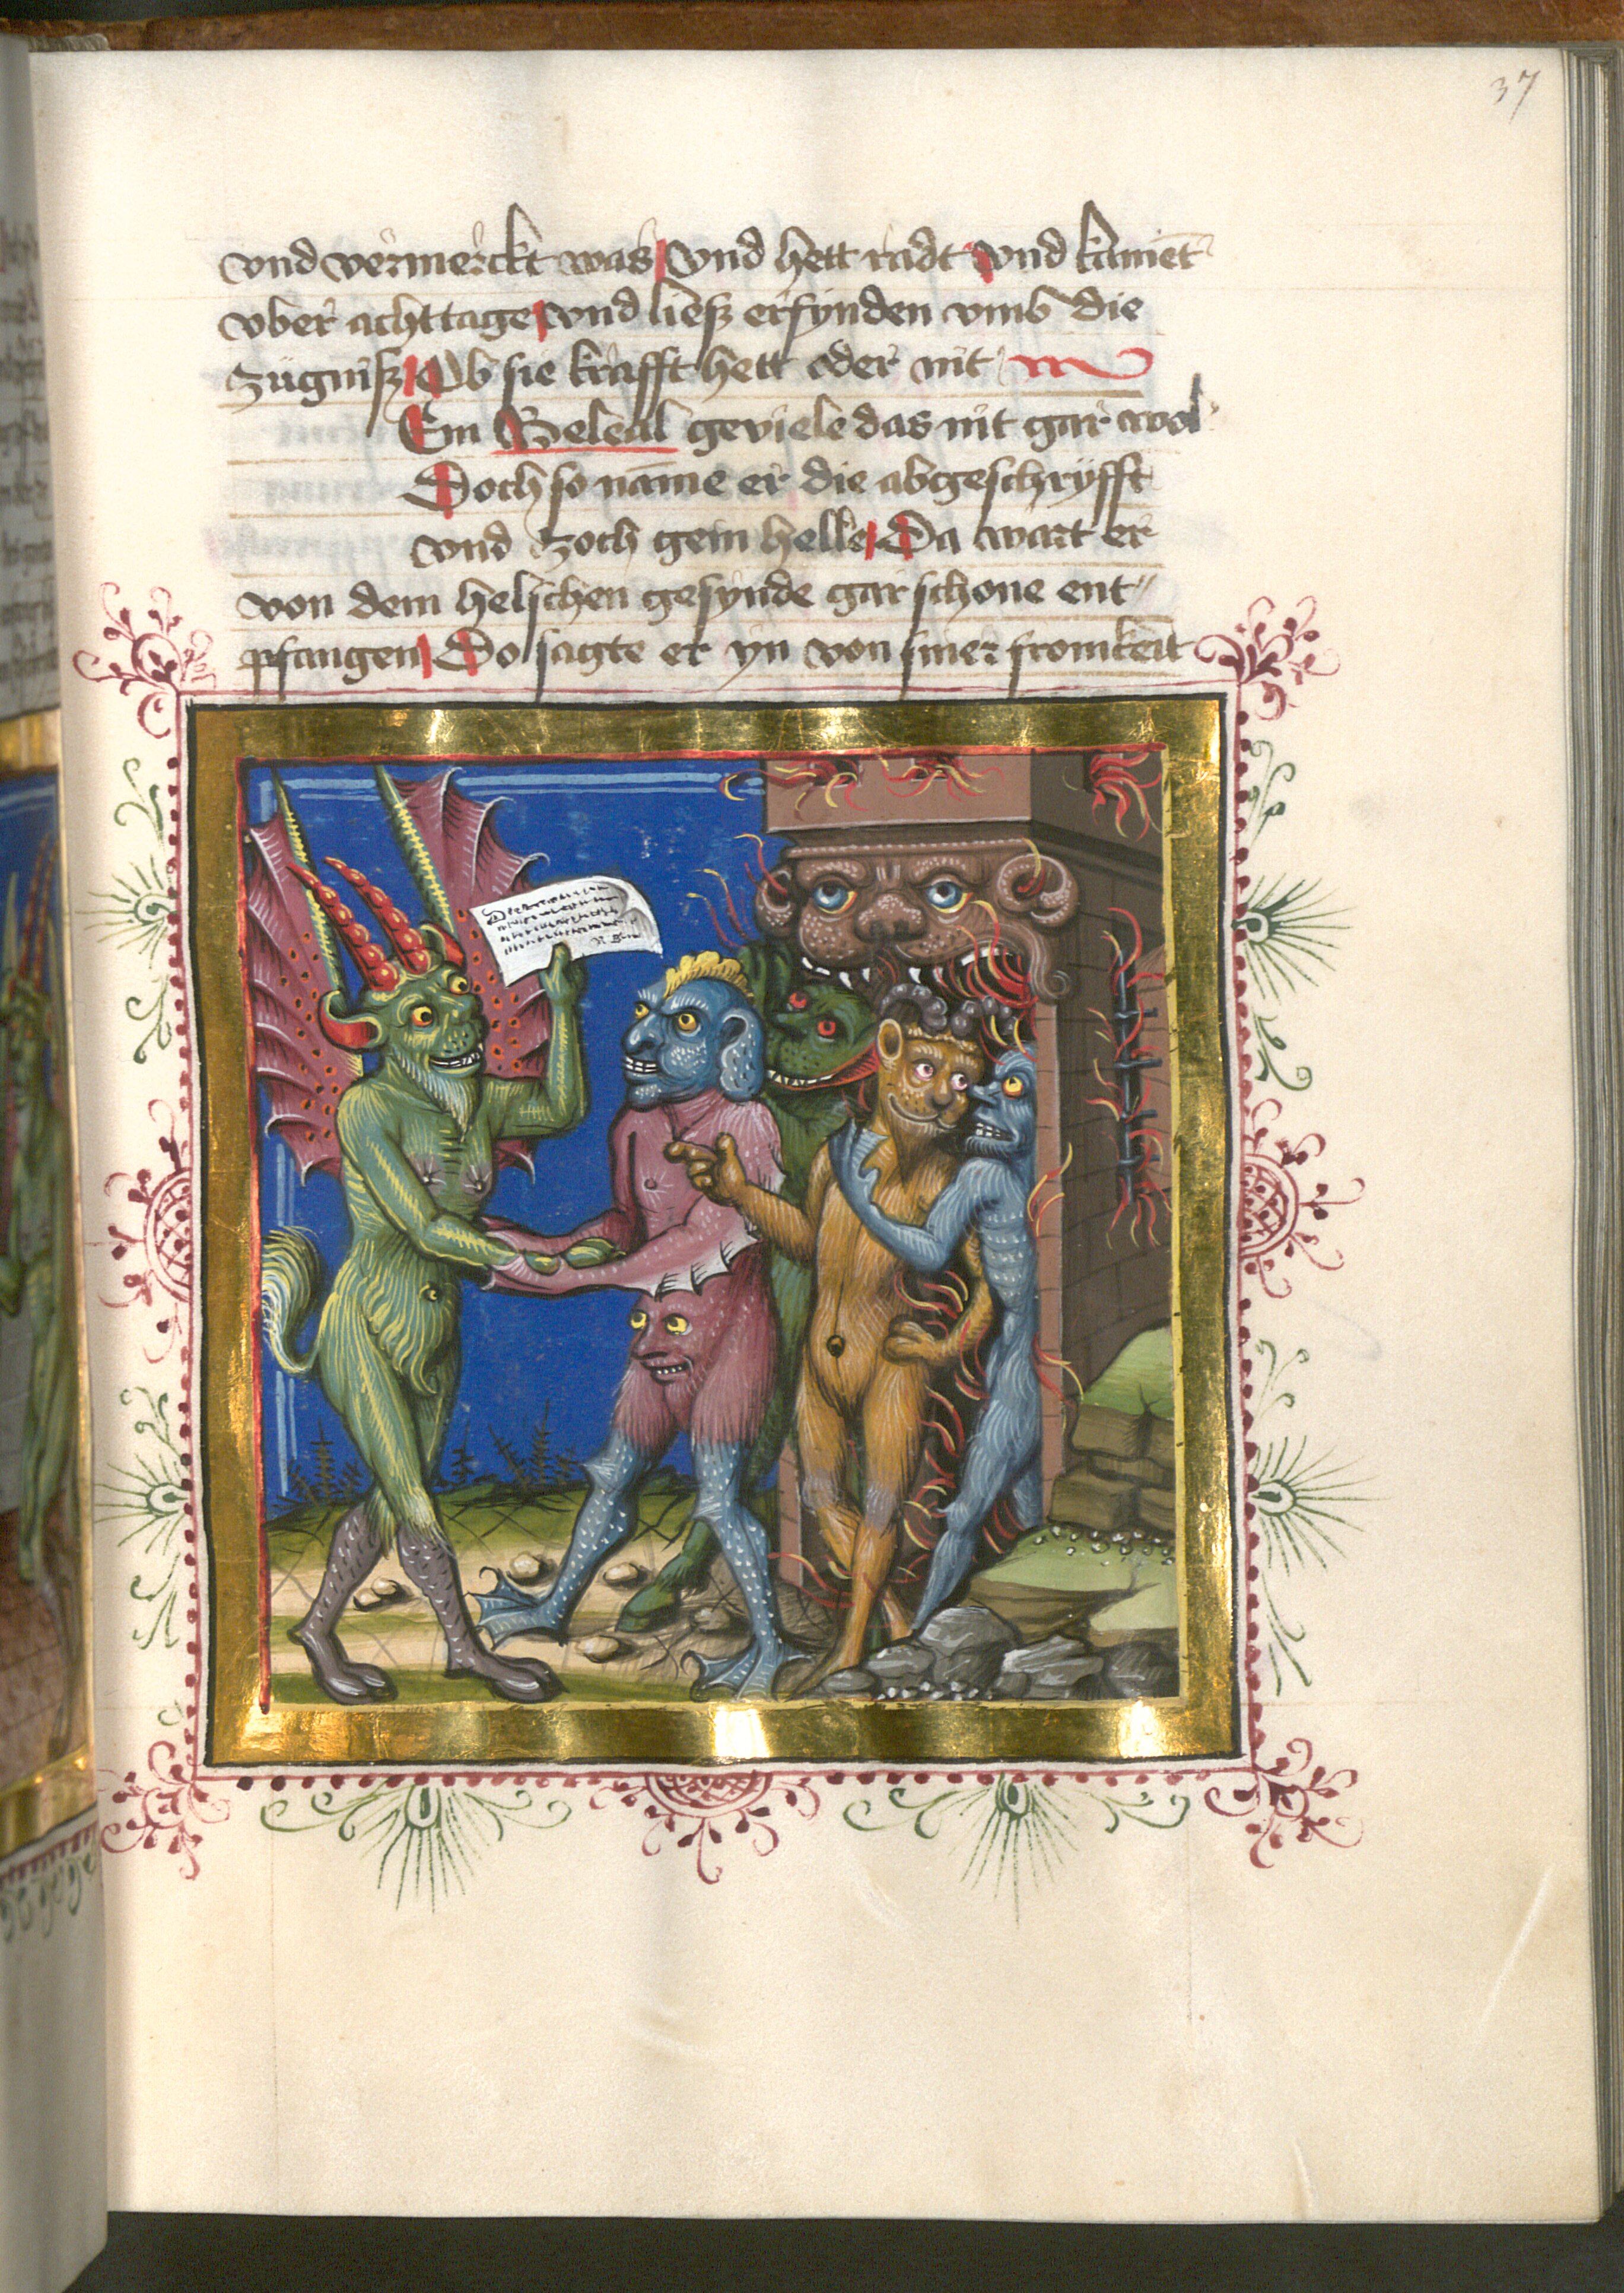 37
vnd vermerckt was vnd hett radt vnd kamēt
vber achttage vnd liesz erfynden vmb die
zugnisz Ob sie krafft hett oder nit
Em Beleal geviele das nit gar wol
Doch so name er die abgeschryfft
vnd zoch gein helle Da wart er
von dem helschen gesynde gar schone ent
pfangen Do sagte er yn von siner fromkeit